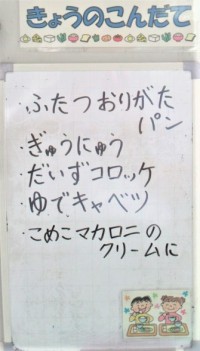 きょうのこんだて
・ふたつおりがた
パン
・ぎゅうにゅう
・だいずコロッケ
・ゆでキャベツ
・こめこマカロニの
クリームに